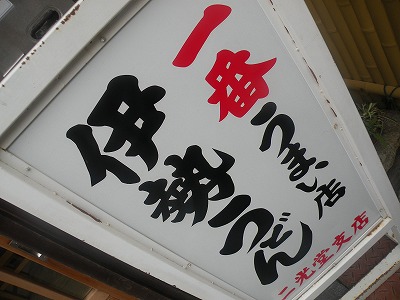 一番
うまい店
伊勢うどん
二光堂支店